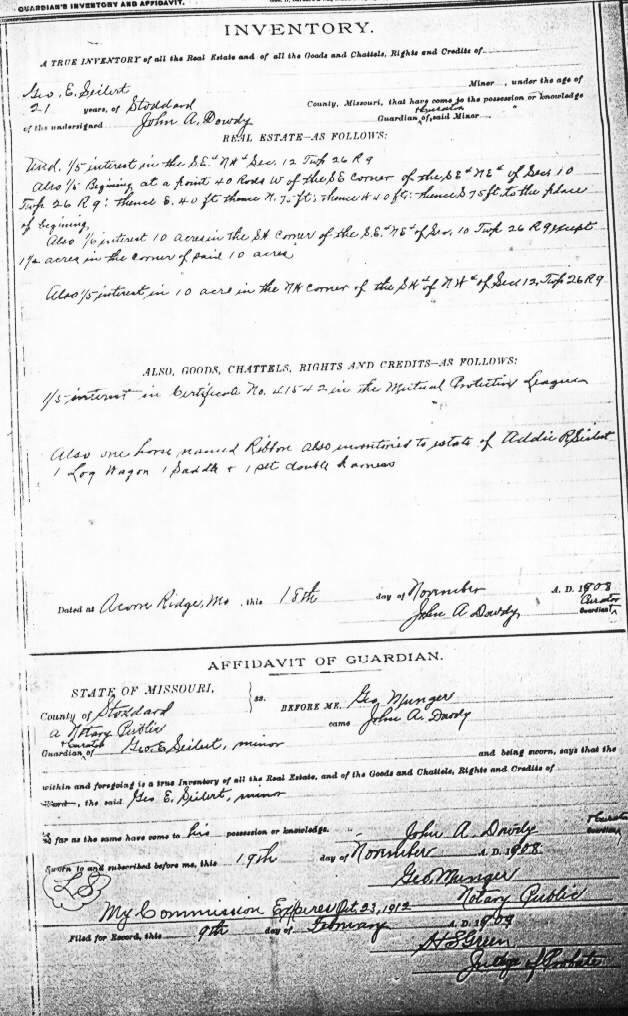 GUARDIAN'S INVENTORY AND AFFIDAVIT.
INVENTORY.
A TRUE INVENTORY of all the Real Estate and of all the Goods and Chattels, Rights and Credits of
Geo. E. Seilert Minor, under the age of
21 years, of Stoddard County, Missouri, that have come to the possession or knowledge
of the undersigned John A. Dowdy Guardian of, said Minor
REAL ESTATE—AS FOLLOWS:
Und. 1/5 interest in the SE4 N Sec. 12 Twp 26 R 9
Also 1/5 Begining at a point 40 Rods W of the SE corner of the SE4 NE4 of Sec 10
Twp 26 R 9: thence E. 40 ft thence N. 75 ft: thence 40 ft: thence S 75 ft to the place
of begining
Also interest 10 acres in the corner of the S.E.4 NE4 of Sec. 10 Twp 26 R 9 except
acres in the corner of said 10 acres
Also 1/5 interest in 10 acre in the corner of the of of Sec 12, Twp 26 R 9
ALSO, GOODS, CHATTELS, RIGHTS AND CREDITS—AS FOLLOWS:
1/5 interest in Certificate No. 41542 in the Mutual Protective League
Also one horse named Ribbon also inventoried to estate of Addie R Seilert
1 Log Wagon 1 Saddle + 1 set double harness
Dated at Acorn Ridge, Mo, this 18th day of November A. D. 1908
John A Dowdy Curator
Guardian
AFFIDAVIT OF GUARDIAN.
STATE OF MISSOURI,
County of Stoddard ss. BEFORE ME, Geo. Munger
a Notary Public came John A. Dowdy
+ Curator
Guardian of Geo. E. Seilert, minor and being sworn, says that the
within and foregoing is a true Inventory of all the Real Estate, and of the Goods and Chattels, Rights and Credits of
Ward, the said Geo E. Seilert, minor
so far as the same have come to his possession or knowledge. John A. Dowdy + Curator
Guardian
Sworn to and subscribed before me, this 19th day of November A. D. 1908
LS Geo. Munger
Notary Public
My Commission Expires Oct 23, 1912
Filed for Record, this 9th day of February A. D. 1909
H S Green
Judge of Probate